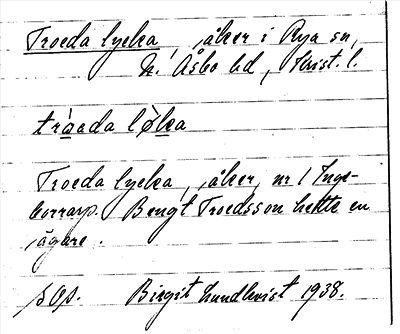 Troeda lycka, åker i Rya sn,
N. Åsbo hd, Krist. l.
tråada lø̀ka
Troeda lycka, åker, nr 1 Inge-
borrarp. Bengt Troedsson hette en
ägare.
Birgit Lundkvist 1938.